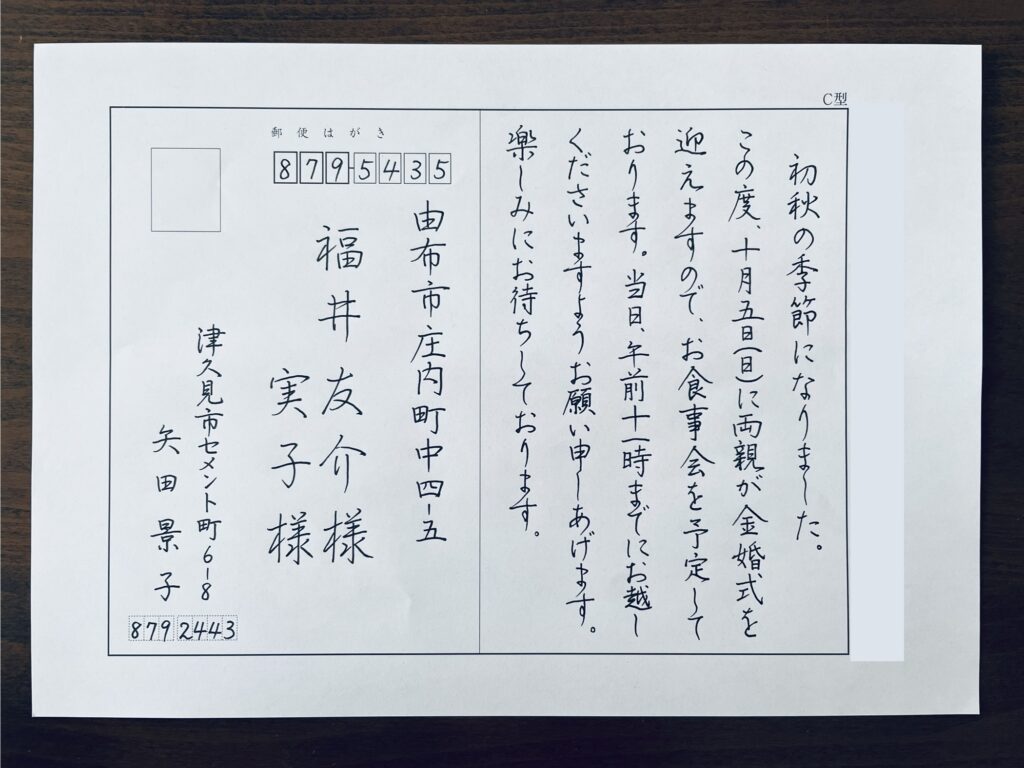 C型
初秋の季節になりました。
この度、十月五日(日)に両親が金婚式を
迎えますので、お食事会を予定して
おります。当日、午前十一時までにお越し
くださいますようお願い申しあげます。
楽しみにお待ちしております。
郵便はがき
879-5435
由布市庄内町中四-五
福井友介様
実子様
津久見市セメント町6-8
矢田景子
879 2443